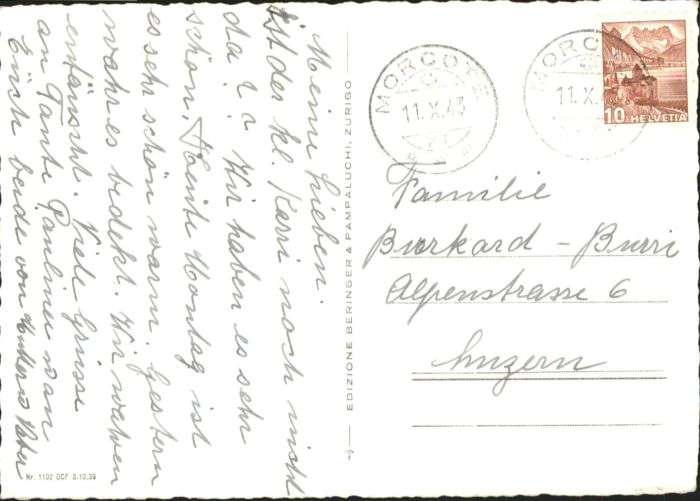 Meine Lieben.
Ist der kl. Karri noch nicht
da? ? Wir haben es sehr
schön. Heute Montag ist
es sehr schön warm. Gestern
wahr es bedekt. Wir wahren
entäuscht. Viele Grüsse
an Tante Pauline von
Euch beide von Mutter u Vater
EDIZIONE BERINGER & PAMPALUCHI, ZURIGO
Nr. 1102 OCF 3.10.39
MORCOTE
11.X.43
MORCOTE
11.X.
10 HELVETIA
Familie
Burkard - Burri
Alpenstrasse 6
Luzern